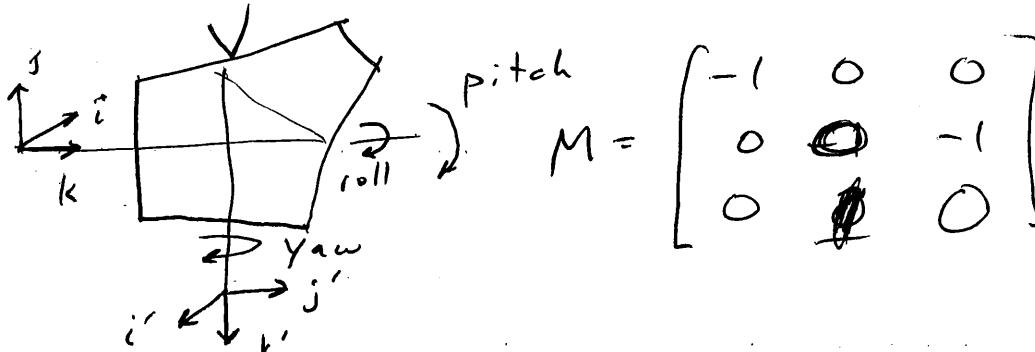 J
i
k
pitch
roll
Yaw
i'
j'
k'
M =
-1 0 0
0 -1
0 0